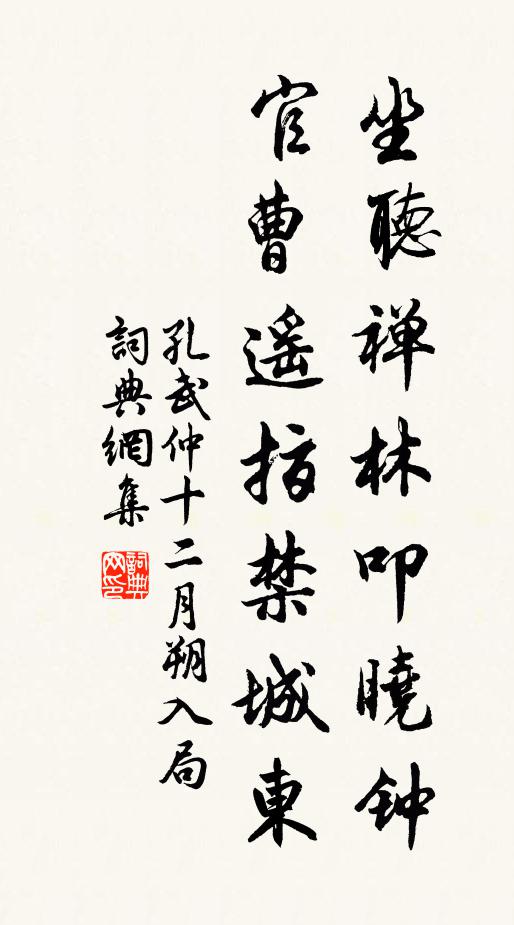 坐聽禅林叩曉钟
官曹遥指禁城東
孔武仲十二月朔入局
詞典網集
詞典网印